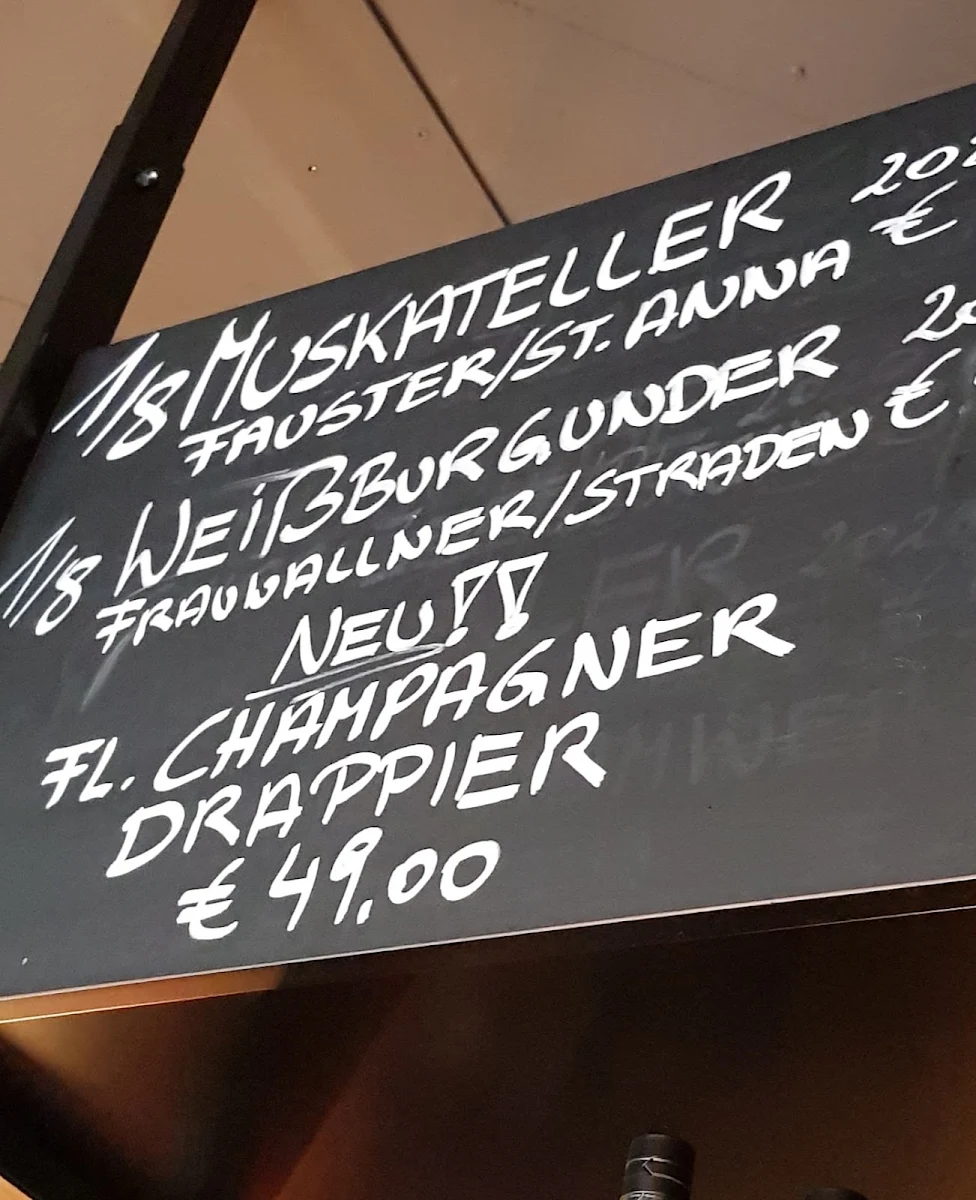 1/8 MUSKATELLER 202
FAUSTER/ST. ANNA €
1/8 WEIßBURGUNDER 20
FRAUWALLNER/STRADEN €
NEU!!
FL. CHAMPAGNER
DRAPPIER
€ 49,00